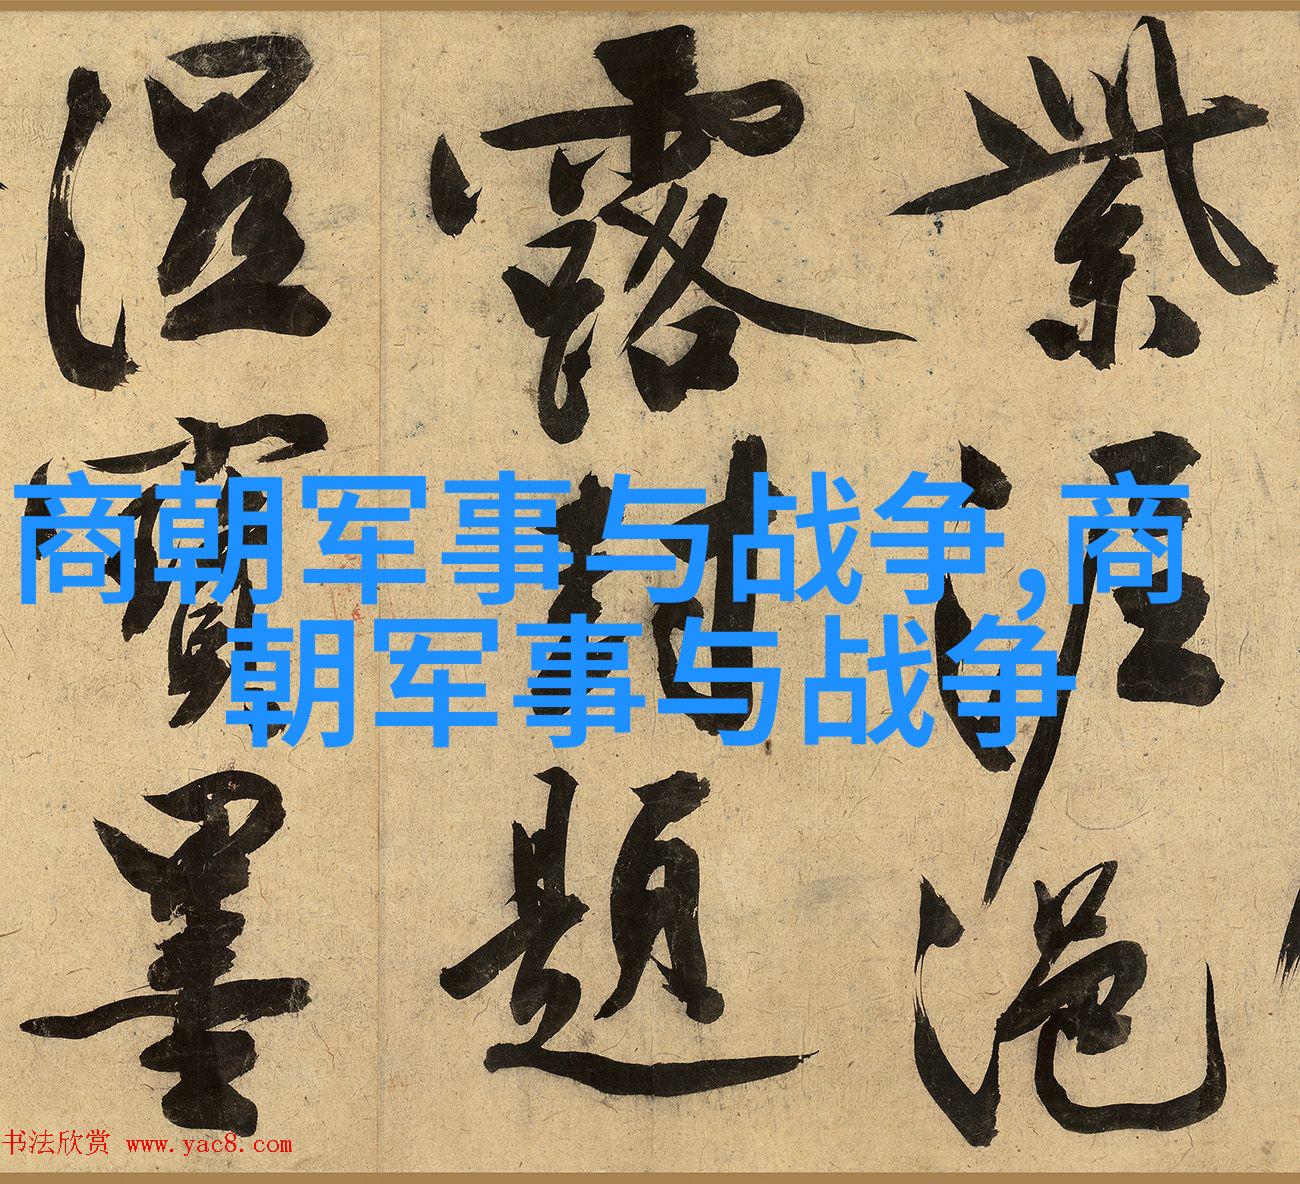 商朝军事与战争,商
朝军事与战争
紫泥浥
露封題
溼寶墨
书法欣赏 www.yac8.com